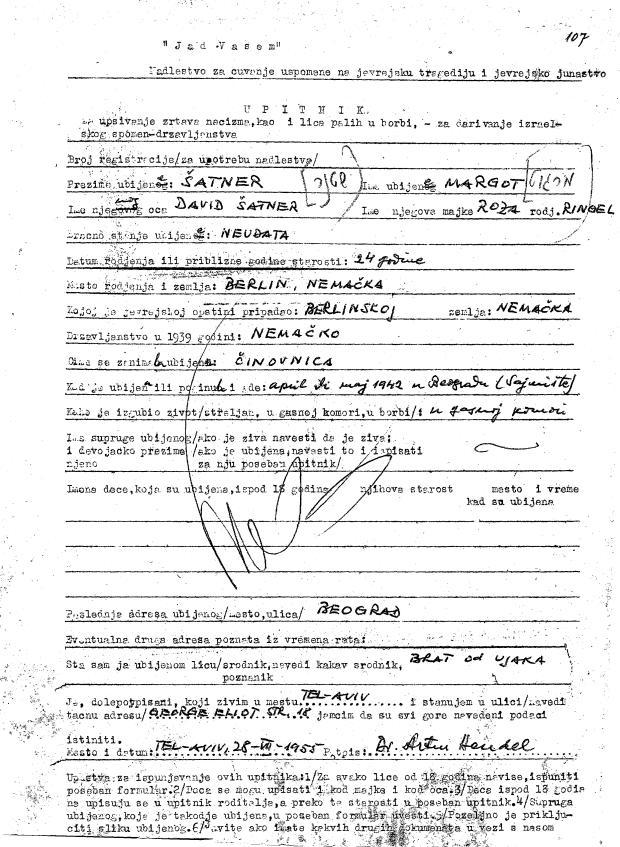 107
"Jad Vasem"
Nadlestvo za cuvanje uspomene na jevrejsku tragediju i jevrejsko junastvo
UPITNIK
za upsivanje zrtava nacizma, kao i lica palih u borbi, - za darivanje izrael-
skog spomen-drzavljanstva
Broj registracije/za upotrebu nadlestva/
Prezime ubijene: ŠATNER שטנר Ime ubijene MARGOT מרגוט
Ime njenog oca DAVID ŠATNER Ime njegova majke ROZA rodj. RINGEL
Bracno stanje ubijene: NEUDATA
Datum rodjenja ili priblizne godine starosti: 24 godine
Mesto rodjenja i zemlja: BERLIN, NEMAČKA
Kojoj je jevrejskoj opstini pripadao: BERLINSKOJ zemlja: NEMAČKA
Drzavljenstvo u 1939 godini: NEMAČKO
Cime se zanimala ubijena: ČINOVNICA
Kad je ubijena ili poginula i gde: april ili maj 1942 u Beogradu (Sajmište)
Kako je izgubio zivot/streljan, u gasnoj komori, u borbi/: u gasnoj komori
Ime supruge ubijenog/ako je ziva navesti da je ziva;
i devojacko prezime /ako je ubijena, navesti to i ispisati
njeno za nju poseban upitnik/
Imena dece, koja su ubijena, ispod 18 godina njihova starost mesto i vreme
kad su ubijena
Poslednje adresa ubijenog/mesto, ulica/ BEOGRAD
Eventualna druga adresa poznata iz vremena rata:
Sta sam ja ubijenom licu/srodnik, navedi kakav srodnik, BRAT od UJAKA
poznanik
Ja, dolepotpisani, koji zivim u mestu TEL-AVIV i stanujem u ulici/navedi
tacnu adresu/ GEORGE ELIOT STR. 18 jamcim da su svi gore navedeni podaci
istiniti.
Mesto i datum: TEL-AVIV, 28-VII-1955 Potpis: Dr. Artur Hendel
Upustva za ispunjavanje ovih upitnika: 1/Za svako lice od 18 godina navise, ispuniti
poseban formular. 2/Deca se mogu upisati i kod majke i kod oca. 3/Deca ispod 18 godina
na upisuju se u upitnik roditelja, a preko te starosti u poseban upitnik. 4/Supruga
ubijenog, koje je takodje ubijena, u poseban formular uvesti. 5/Pozeljno je priklju-
citi sliku ubijenog. 6/Javite ako imate kakvih drugih dokumenata u vezi s nasom